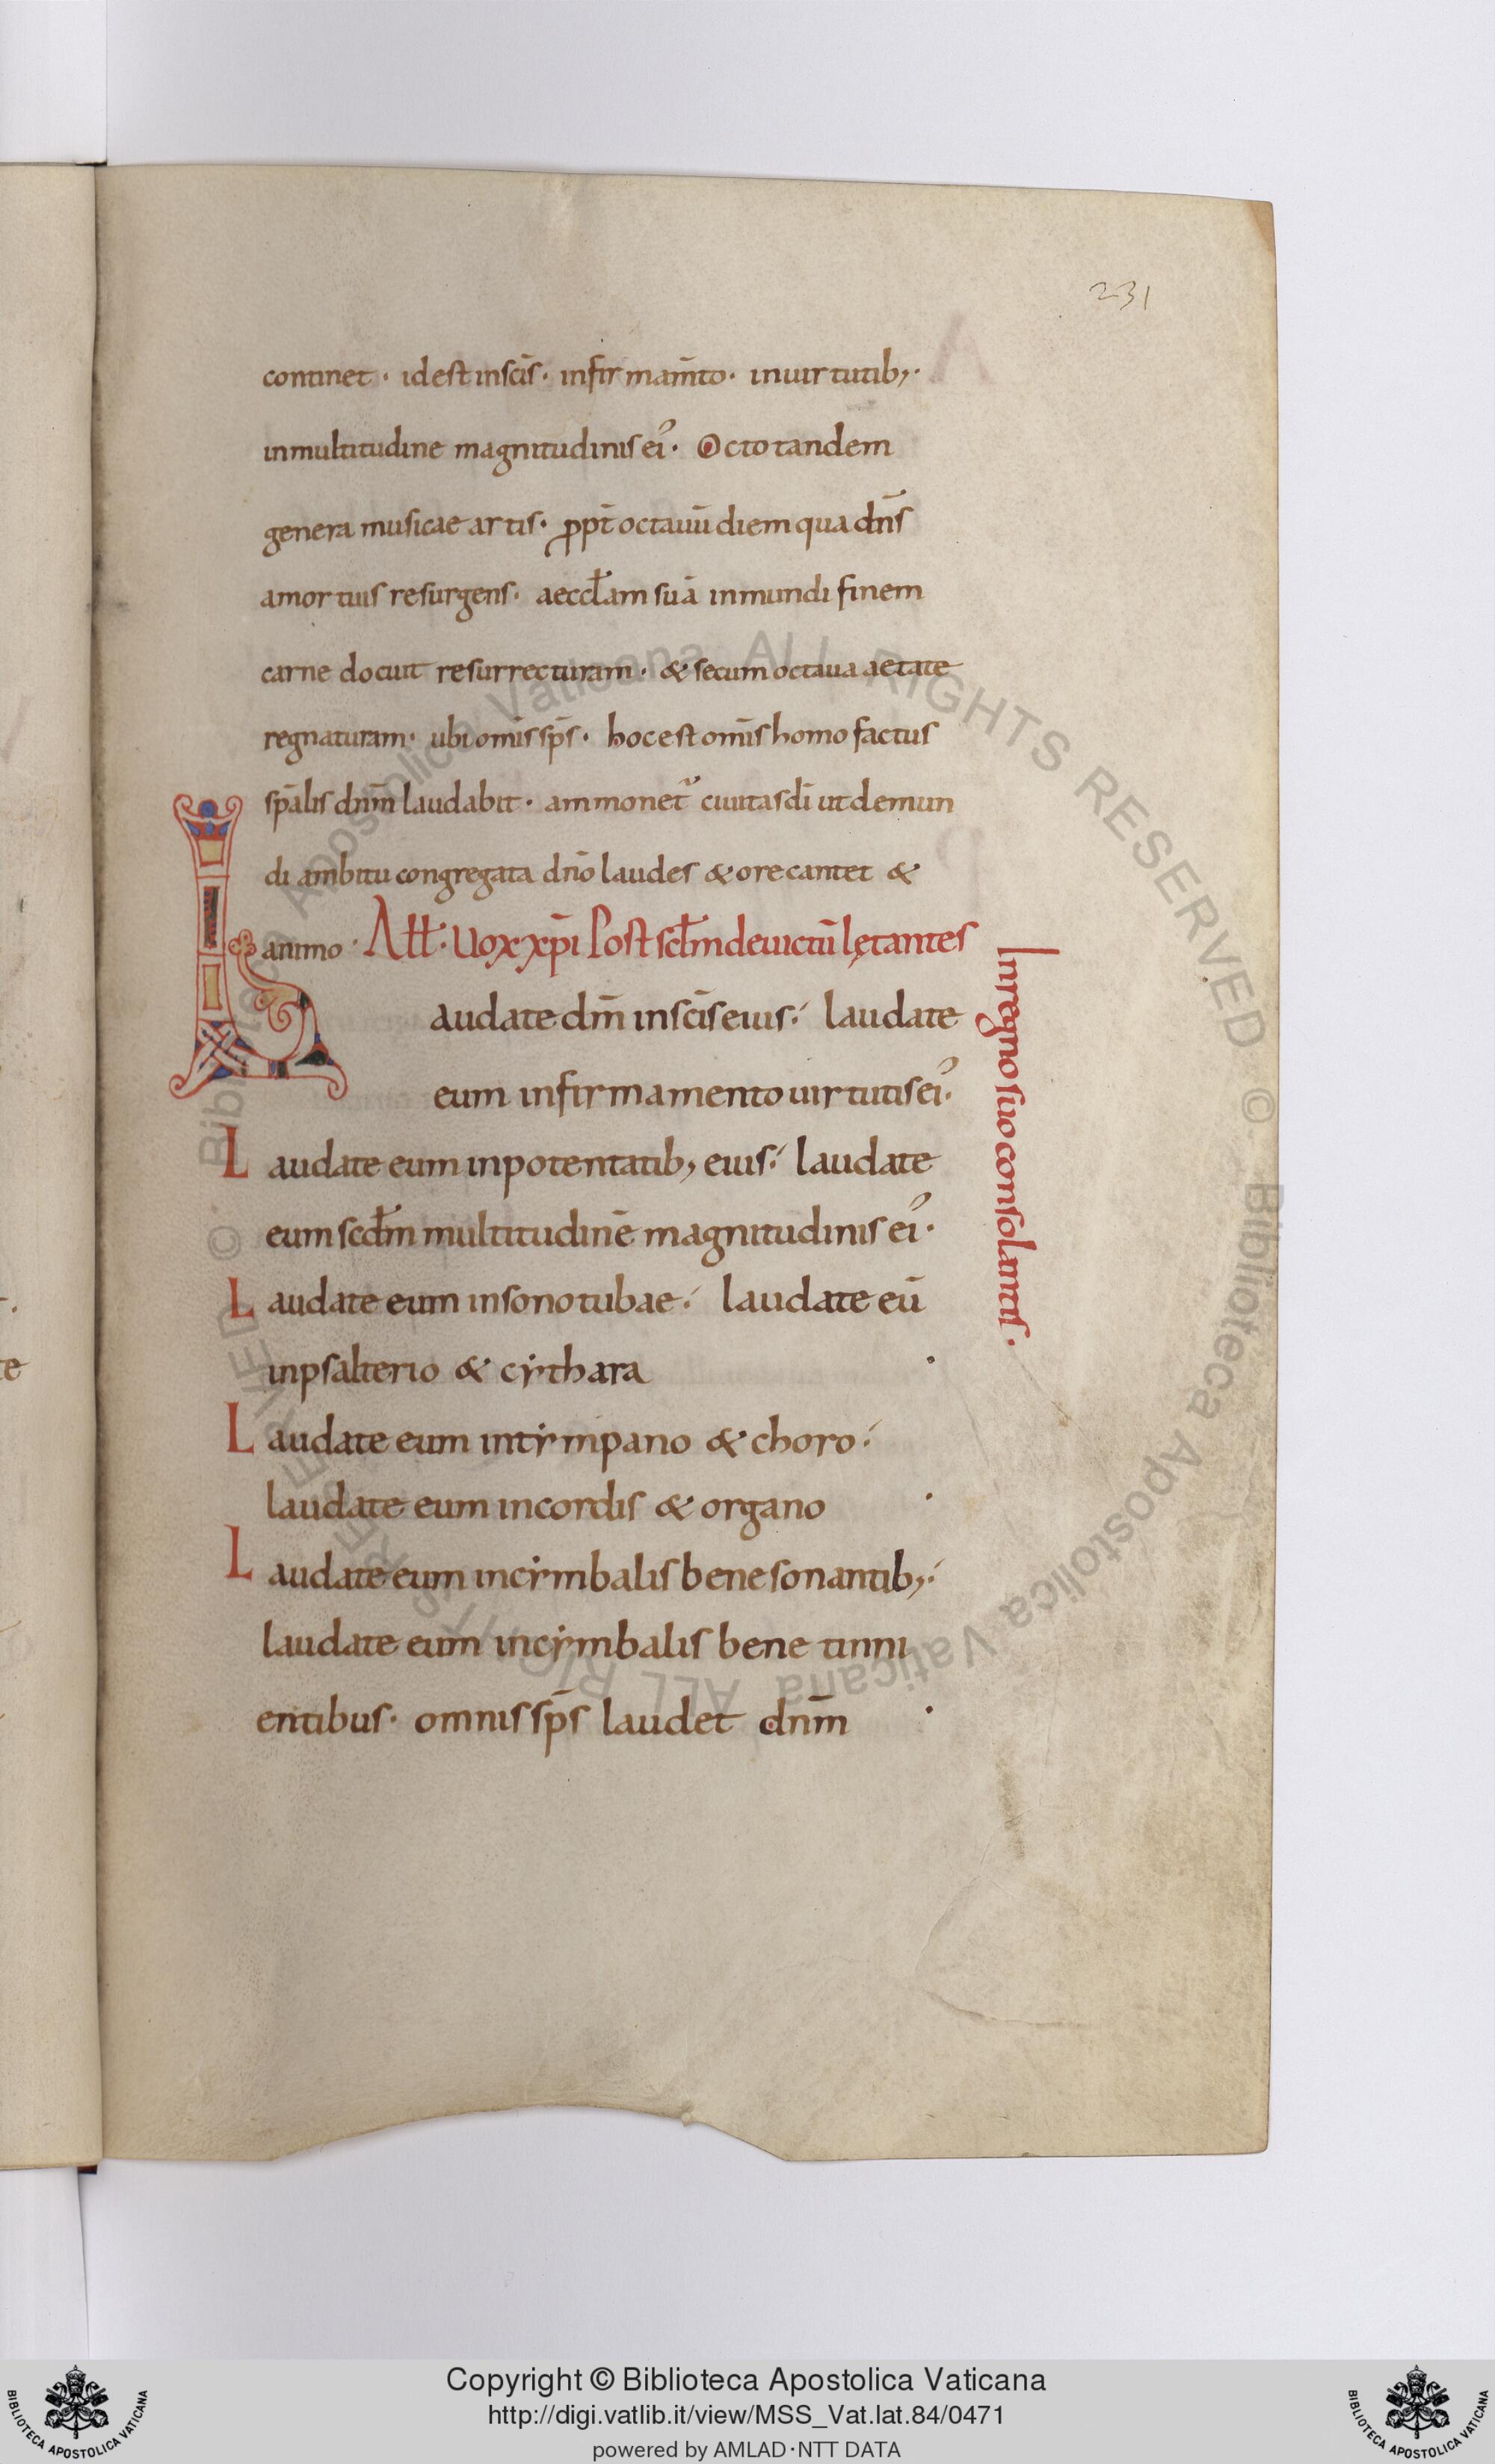 231
continet · idest inscīs · infirmam̄to · inuirtutib; ·
inmultitudine magnitudinis ei᾽ · Octo tandem
genera musicae artis · ꝓpt̄ octauū diem qua dn̄s
amortuis resurgens · aeccl̄am suā inmundi finem
carne docuit resurrecturam · & secum octaua aetate
regnaturam · ubi omīs sp̄s · hoc est omīs homo factus
sp̄alis dn̄m laudabit · ammonet᾽ ciuitas dī ut demun
di ambitu congregata dn̄o laudes & ore cantet &
animo · All̄ · Uox xp̄i Post scl̄m deuictū lętantes
In regno suo consolantis ·
Laudate dm̄ inscīs eius ·́ laudate
eum infirmamento uirtutis ei᾽ ·
Laudate eum inpotentatib; eius ·́ laudate
eum scd̄m multitudinē magnitudinis ei᾽ ·
Laudate eum insono tubae ·́ laudate eū
inpsalterio & cẏthara ·
Laudate eum intẏmpano & choro ·́
laudate eum incordis & organo ·
Laudate eum incẏmbalis bene sonantib; ·́
laudate eum incẏmbalis bene tinni
entibus · omnis sp̄s laudet dn̄m ·
Copyright © Biblioteca Apostolica Vaticana
http://digi.vatlib.it/view/MSS_Vat.lat.84/0471
powered by AMLAD·NTT DATA
BIBLIOTECA APOSTOLICA VATICANA
BIBLIOTECA APOSTOLICA VATICANA